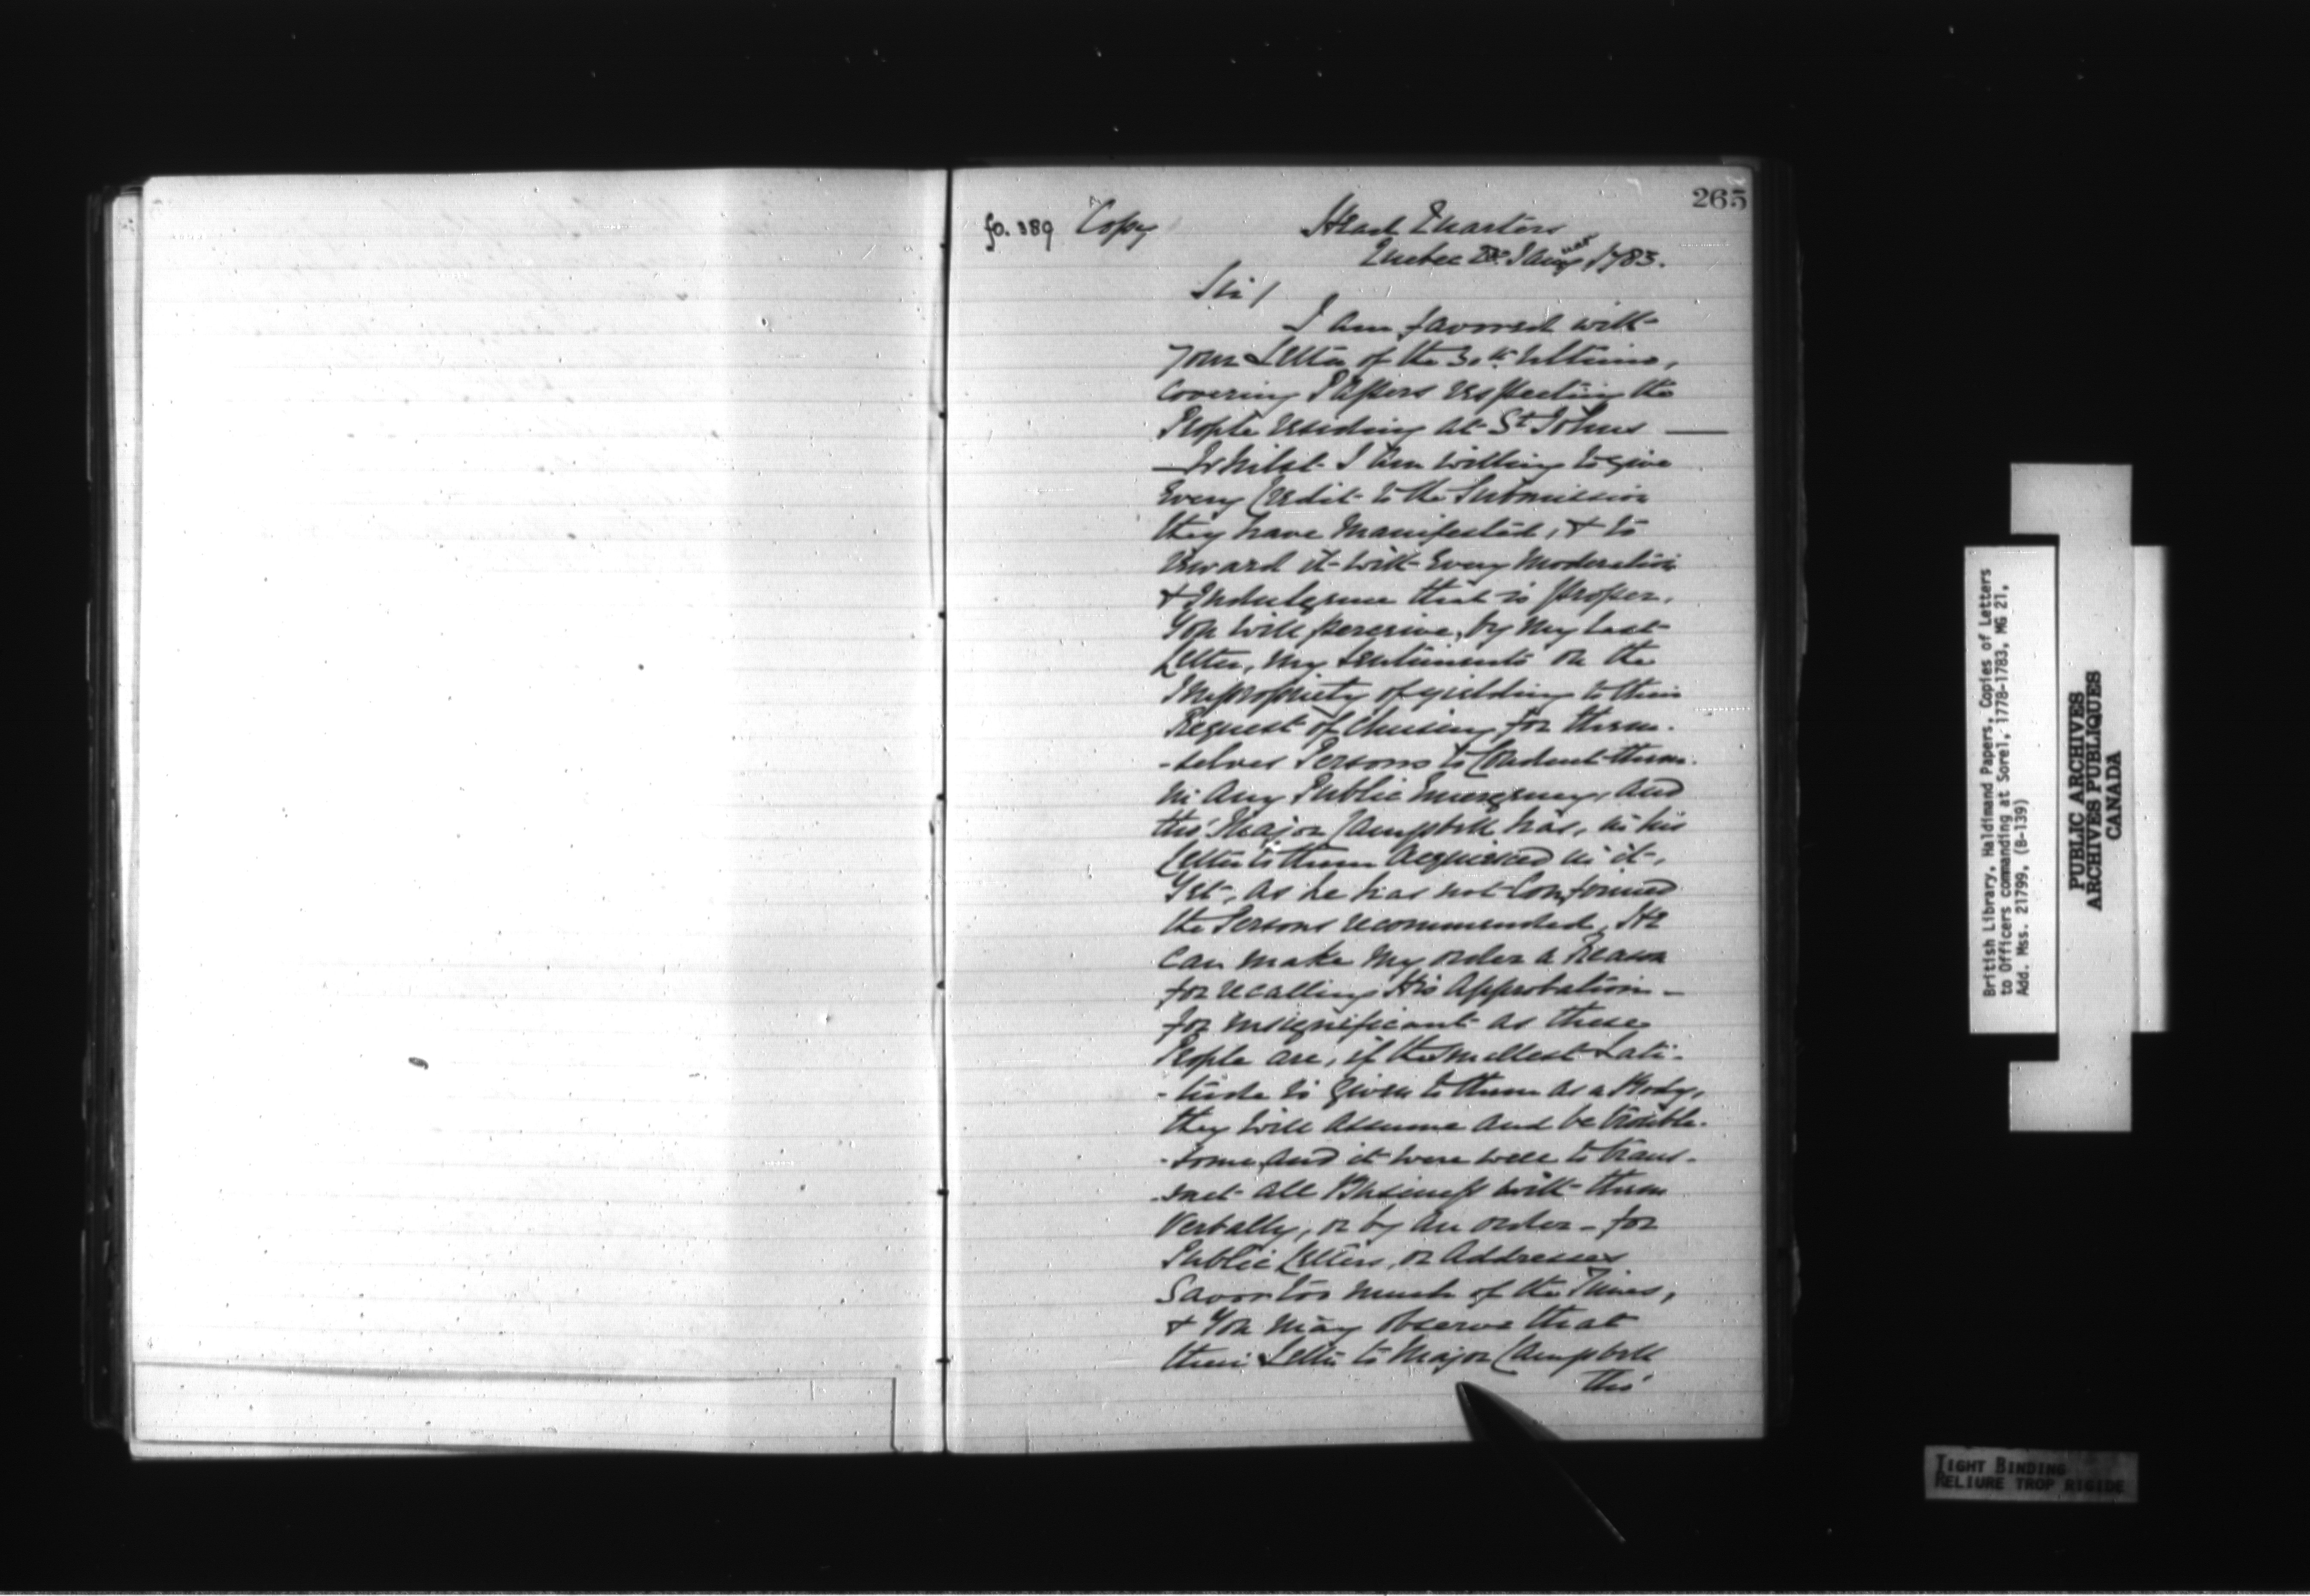 265
fo. 389 Copy Head Quarters
Quebec Janr̄y 1783.
Sir/
I am favored with
your Letter of the 30th Ultimo,
covering Papers respecting the
People residing at St Johns —
— Whilst I am willing to give
Every Credit to the Submission
they have manifested, & to
reward it with Every Moderation
& Indulgence that is proper,
You will perceive, by my last
Letter, my Sentiments on the
Impropriety of yielding to their
Request of Chusing for them-
-selves Persons to Conduct them
in Any Public Emergency, And
tho' Major Campbell has, in his
Letter to them Acquiesced in it,
Yet, as he has not Confirmed
the Persons recommended, He
can make my order a Reason
for recalling His Approbation —
for insignificant as these
People are, if the smallest Lati-
-tude is given to them as a Body,
they will Assume and be trouble-
-some, And it were well to trans-
-act all Business with them
Verbally, or by an order — for
Public Letters, or Addresses
Savor too much of the Times,
& You may observe that
their Letter to Major Campbell
tho'
British Library, Haldimand Papers, Copies of Letters
to Officers commanding at Sorel, 1778-1783, MG 21,
Add. Mss. 21799, (B-139)
PUBLIC ARCHIVES
ARCHIVES PUBLIQUES
CANADA
TIGHT BINDING
RELIURE TROP RIGIDE